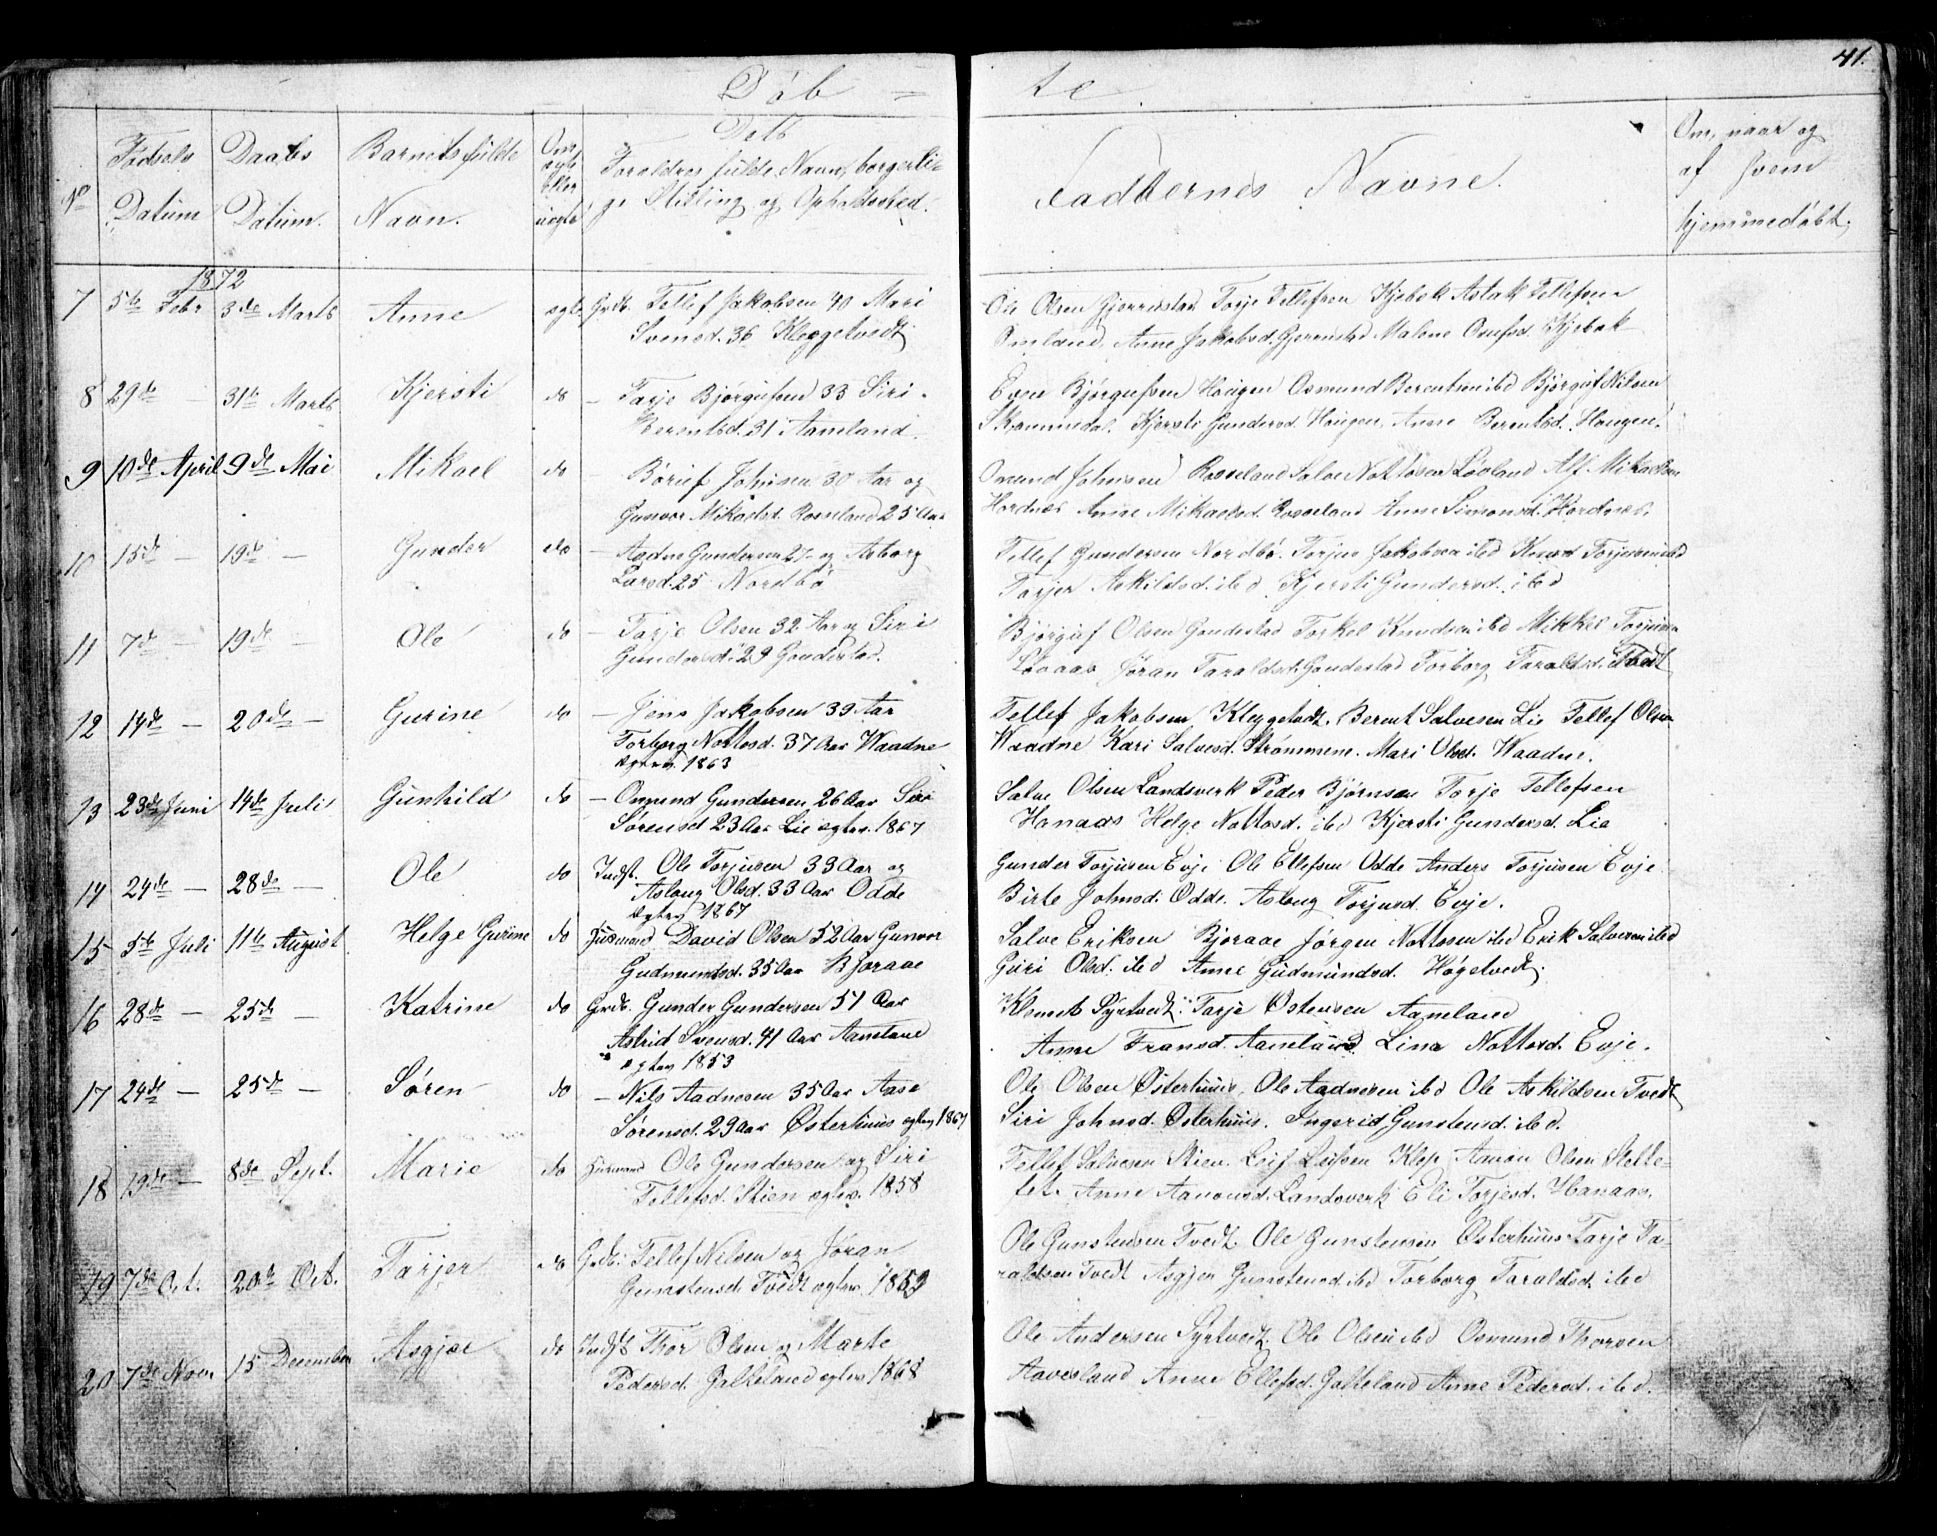 41.
Döb = te
No Fødsels Datum
Daabs Datum.
Barnets fulde Navn.
Om ægte eller uægte
Dets Forældres fulde Navn, borgerlige Stilling og Opholdssted.
Fadbernes Navne.
Om, naar og af hvem hjemmedøbt.
1872
7 5te Febr 3de Marts Anne egte Grdb. Tellef Jakobsen 40 Mari
Svensd. 36 Kleggetvedt
Ole Olsen Gjerrestad Torje Tellefsen Kjebek Aslak Tellefsen
Omland, Anne Jakobsd. Gjerrestad Malene Osufsd. Kjebek
8 29de 31te Marts Kjersti do — Tarje Bjørgufsen 33 Siri
Berentsd. 31 Aamland.
Even Bjørgufsen Hougen Osmund Berentsen ibd Bjørguf Nilsen
Skrammedal. Kjersti Gundersd. Hougen, Anne Berentsd. Hougen.
9 10de April 9de Mai Mikael do Børuf Johnsen 30 Aar og
Gunvor Mikaelsd. Rosseland 25 Aar
Omund Johnsen Rosseland Salve Nottosen Løvland Alf Mikaelsen
Hordnes Anne Mikaelsd. Rosseland Anne Simonsd. Hordnes.
10 15de — 19de — Gunder do — Aadne Gundersen 27 og Asborg
Larsd. 25 Nordbø
Tellef Gundersen Nordbø. Torjus Jakobsen ibd Knud Torjusen ibd
Torjer Askildsd. ibd Kjersti Gundersd. ibd
11 7de — 19de — Ole do — Tarje Olsen 32 Aar og Siri
Gundersd. 29 Gondestad.
Bjørguf Olsen Gondestad Torkel Knudsen ibd Mikkel Torjusen
Løvaas Jøran Taraldsd. Gondestad Torborg Taraldsd. Tvedt
12 14de — 20de — Gurine do — Jens Jakobsen 39 Aar
Torborg Nottosd. 37 Aar Waadne
Egtev. 1863
Tellef Jakobsen Kleggetvdt. Berent Salvesen Lie Tellef Olsen
Waadne Kari Salvesd. Strømmene. Mari Olsd. Waadne.
13 23de Juni 14de Juli Gunhild do — Omund Gundersen 26 Aar Siri
Sørensd. 23 Aar Lie egtev. 1867
Salve Olsen Landsverk Peder Bjørnsen Torje Tellefsen
Hanaas Helge Nottosd. ibd Kjersti Gundersd. Lie
14 24de — 28de — Ole do Indst. Ole Torjusen 33 Aar og
Aslaug Olsd. 33 Aar Odde
Egtev 1867
Gunder Torjusen Evje Ole Ellefsen Odde Anders Torjusen Evje
Birte Johnsd. Odde. Aslaug Torjusd. Evje.
15 5te Juli 11te August Helge Gurine do Husmand David Olsen 52 Aar Gunvor
Gudmundsd. 35 Aar Bjoraae
Salve Eriksen Bjoraae Jørgen Nottosen ibd Erik Salvesen ibd
Guri Olsd. ibd Anne Gudmundsd. Høgetvedt.
16 28de — 25de — Katrine do Grdb. Gunder Gundersen 51 Aar
Astrid Svensd. 41 Aar Aamland
egtev 1853
Klemet Syrtvedt: Tarje Østensen Aamland
Anne Fransd. Aamland Lina Nottosd. Evje.
17 24de — 25de — Søren do — Nils Aadnesen 35 Aar Aase
Sørensd. 29 Aar Østerhuus egtev 1867
Ole Olsen Østerhuus, Ole Aadnesen ibd Ole Askildsen Tvedt
Siri Johnsd. Østerhuus. Ingerid Gunstensd. ibd.
18 19de — 8de Sept. Marie do Husmand Ole Gundersen og Siri
Tellefsd. Stien egtev. 1858
Tellef Salvesen Stien. Leif Leifsen Klep Aanon Olsen Stelte-
tet. Anne Aanonsd. Landsverk Eli Torjesd. Hanaas.
19 7de Oct. 20de Oct. Tarjer do Grdb. Tellef Nilsen og Jøran
Gunstensd. Tvedt egtev. 1859
Ole Gunstensen Tvedt. Ole Gunstensen Østerhuus Tarje Ta-
raldsen Tvedt Asgjer Gunstensd. ibd Torborg Taraldsd. ibd
20 7de Novr 15 December Asgjær do Indst Thor Olsen og Marte
Pedersd. Galteland egtev 1868
Ole Andersen Syrtvedt. Ole Olsen ibd Osmund Thorsen
Aavesland Anne Ellefsd. Galteland Anne Pedersd. ibd.